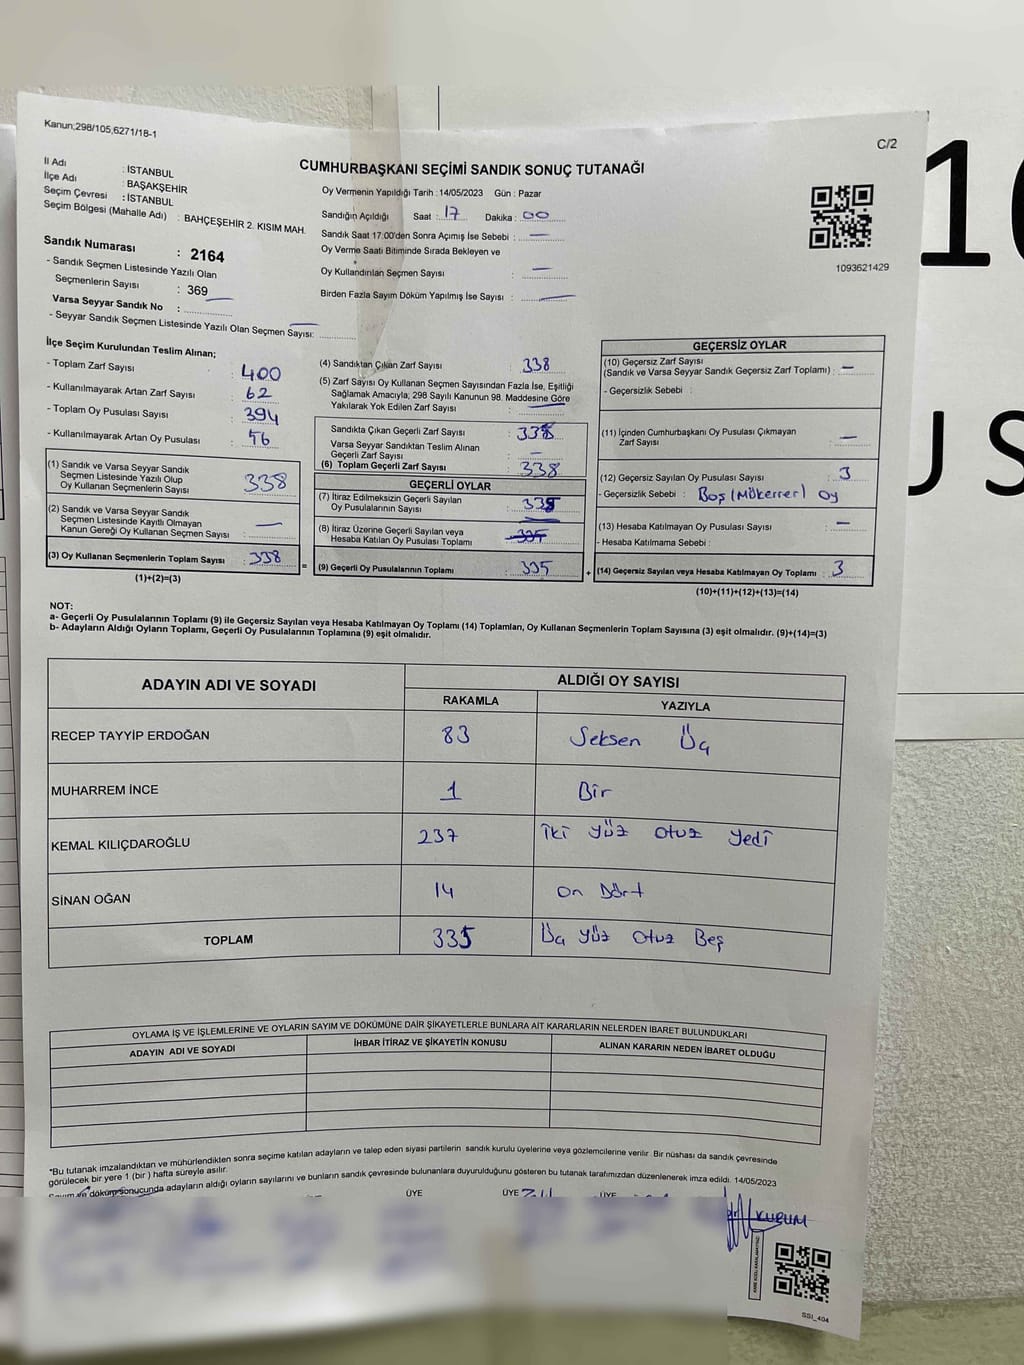 Kanun;298/105,6271/18-1
C/2
CUMHURBAŞKANI SEÇİMİ SANDIK SONUÇ TUTANAĞI
İl Adı : İSTANBUL
İlçe Adı : BAŞAKŞEHİR
Seçim Çevresi : İSTANBUL
Seçim Bölgesi (Mahalle Adı) : BAHÇEŞEHİR 2. KISIM MAH.
Sandık Numarası : 2164
- Sandık Seçmen Listesinde Yazılı Olan
Seçmenlerin Sayısı : 369
Varsa Seyyar Sandık No :
- Seyyar Sandık Seçmen Listesinde Yazılı Olan Seçmen Sayısı:
Oy Vermenin Yapıldığı Tarih : 14/05/2023 Gün : Pazar
Sandığın Açıldığı Saat : 17 Dakika : 00
Sandık Saat 17:00'den Sonra Açımış İse Sebebi : —
Oy Verme Saati Bitiminde Sırada Bekleyen ve
Oy Kullandırılan Seçmen Sayısı : —
Birden Fazla Sayım Döküm Yapılmış İse Sayısı : —
1093621429
16
U S
İlçe Seçim Kurulundan Teslim Alınan;
- Toplam Zarf Sayısı : 400
- Kullanılmayarak Artan Zarf Sayısı : 62
- Toplam Oy Pusulası Sayısı : 394
- Kullanılmayarak Artan Oy Pusulası : 56
(1) Sandık ve Varsa Seyyar Sandık
Seçmen Listesinde Yazılı Olup
Oy Kullanan Seçmenlerin Sayısı : 338
(2) Sandık ve Varsa Seyyar Sandık
Seçmen Listesinde Kayıtlı Olmayan
Kanun Gereği Oy Kullanan Seçmen Sayısı : —
(3) Oy Kullanan Seçmenlerin Toplam Sayısı : 338
(1)+(2)=(3)
=
(4) Sandıktan Çıkan Zarf Sayısı : 338
(5) Zarf Sayısı Oy Kullanan Seçmen Sayısından Fazla İse, Eşitliği
Sağlamak Amacıyla; 298 Sayılı Kanunun 98. Maddesine Göre
Yakılarak Yok Edilen Zarf Sayısı : —
Sandıkta Çıkan Geçerli Zarf Sayısı : 338
Varsa Seyyar Sandıktan Teslim Alınan
Geçerli Zarf Sayısı : —
(6) Toplam Geçerli Zarf Sayısı : 338
GEÇERLİ OYLAR
(7) İtiraz Edilmeksizin Geçerli Sayılan
Oy Pusulalarının Sayısı : 335
(8) İtiraz Üzerine Geçerli Sayılan veya
Hesaba Katılan Oy Pusulası Toplamı : 335
(9) Geçerli Oy Pusulalarının Toplamı : 335
+
GEÇERSİZ OYLAR
(10) Geçersiz Zarf Sayısı
(Sandık ve Varsa Seyyar Sandık Geçersiz Zarf Toplamı) : —
- Geçersizlik Sebebi :
(11) İçinden Cumhurbaşkanı Oy Pusulası Çıkmayan
Zarf Sayısı : —
(12) Geçersiz Sayılan Oy Pusulası Sayısı : 3
- Geçersizlik Sebebi : Boş (Mükerrer) oy
(13) Hesaba Katılmayan Oy Pusulası Sayısı : —
- Hesaba Katılmama Sebebi :
(14) Geçersiz Sayılan veya Hesaba Katılmayan Oy Toplamı : 3
(10)+(11)+(12)+(13)=(14)
NOT:
a- Geçerli Oy Pusulalarının Toplamı (9) ile Geçersiz Sayılan veya Hesaba Katılmayan Oy Toplamı (14) Toplamları, Oy Kullanan Seçmenlerin Toplam Sayısına (3) eşit olmalıdır. (9)+(14)=(3)
b- Adayların Aldığı Oyların Toplamı, Geçerli Oy Pusulalarının Toplamına (9) eşit olmalıdır.
ADAYIN ADI VE SOYADI ALDIĞI OY SAYISI
RAKAMLA YAZIYLA
RECEP TAYYİP ERDOĞAN 83 Seksen Üç
MUHARREM İNCE 1 Bir
KEMAL KILIÇDAROĞLU 237 iki yüz otuz yedi
SİNAN OĞAN 14 on Dört
TOPLAM 335 Üç yüz otuz Beş
OYLAMA İŞ VE İŞLEMLERİNE VE OYLARIN SAYIM VE DÖKÜMÜNE DAİR ŞİKAYETLERLE BUNLARA AİT KARARLARIN NELERDEN İBARET BULUNDUKLARI
ADAYIN ADI VE SOYADI İHBAR İTİRAZ VE ŞİKAYETİN KONUSU ALINAN KARARIN NEDEN İBARET OLDUĞU
*Bu tutanak imzalandıktan ve mühürlendikten sonra seçime katılan adayların ve talep eden siyasi partilerin sandık kurulu üyelerine veya gözlemcilerine verilir. Bir nüshası da sandık çevresinde
görülecek bir yere 1 (bir) hafta süreyle asılır.
Sayım ve döküm sonucunda adayların aldığı oyların sayılarını ve bunların sandık çevresinde bulunanlara duyurulduğunu gösteren bu tutanak tarafımızdan düzenlenerek imza edildi. 14/05/2023
ÜYE ÜYE ÜYE
KURUM
SSİ_404